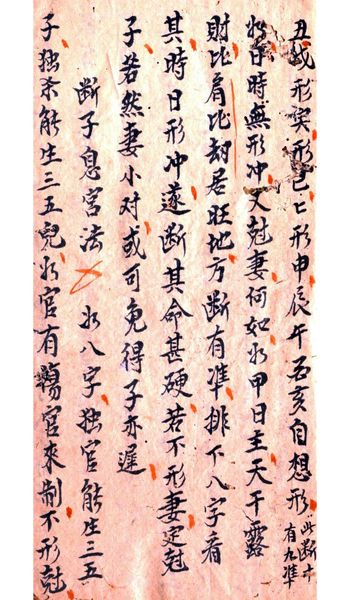 丑戌形寅形巳匕形申辰午酉亥自想形此断十有九準
如日時無形冲又尅妻何如如甲日主天干露
財比肩比刼居旺地方断有準排下八字看
其時日形冲遂断其命甚硬若不形妻定尅
子若然妻小对或可免得子亦遲
断子息宫法 如八字独官能生三五
子独杀能生三五兒如官有觴官來制不形尅